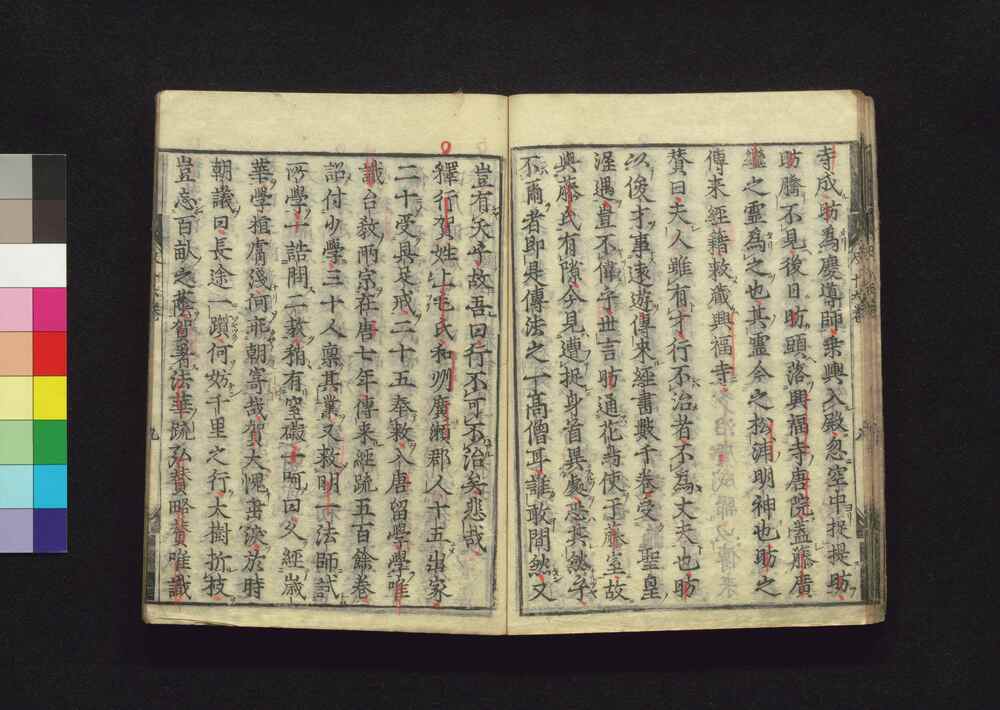 寺成昉為慶導師乗輿入殿忽空中捉提昉
昉騰不見後日昉頭落興福寺唐院蓋藤廣
繼之靈為之也其靈今之松浦明神也昉之
傳来經藉救藏興福寺
賛曰夫人雖有才行不治者不為丈夫也昉
以俊才事遠遊傳来經書數千卷受聖皇
渥遇豈不偉乎世言昉通花鳥使于藤室故
與藤氏有隙今見遭捉身首異處恐其然乎
不爾者即是傳法之一高僧耳誰敢間然又
豈有夭乎故吾曰行不可不治矣悲哉
釋行賀姓上毛氏和州廣瀬郡人十五出家
二十受具足戒二十五奉敕入唐留學學唯
識台教兩宗在唐七年傳来經疏五百餘卷
詔付少學三十人禀其業又救明一法師試
所學一詰問二教稍有窒礙一呵曰久經歳
華學植膚淺何乖朝寄哉賀大愧而泣於時
朝議曰長途一躓何妨千里之行大樹折枝
豈忘百畝之蔭賀著法華疏弘賛略賛唯識